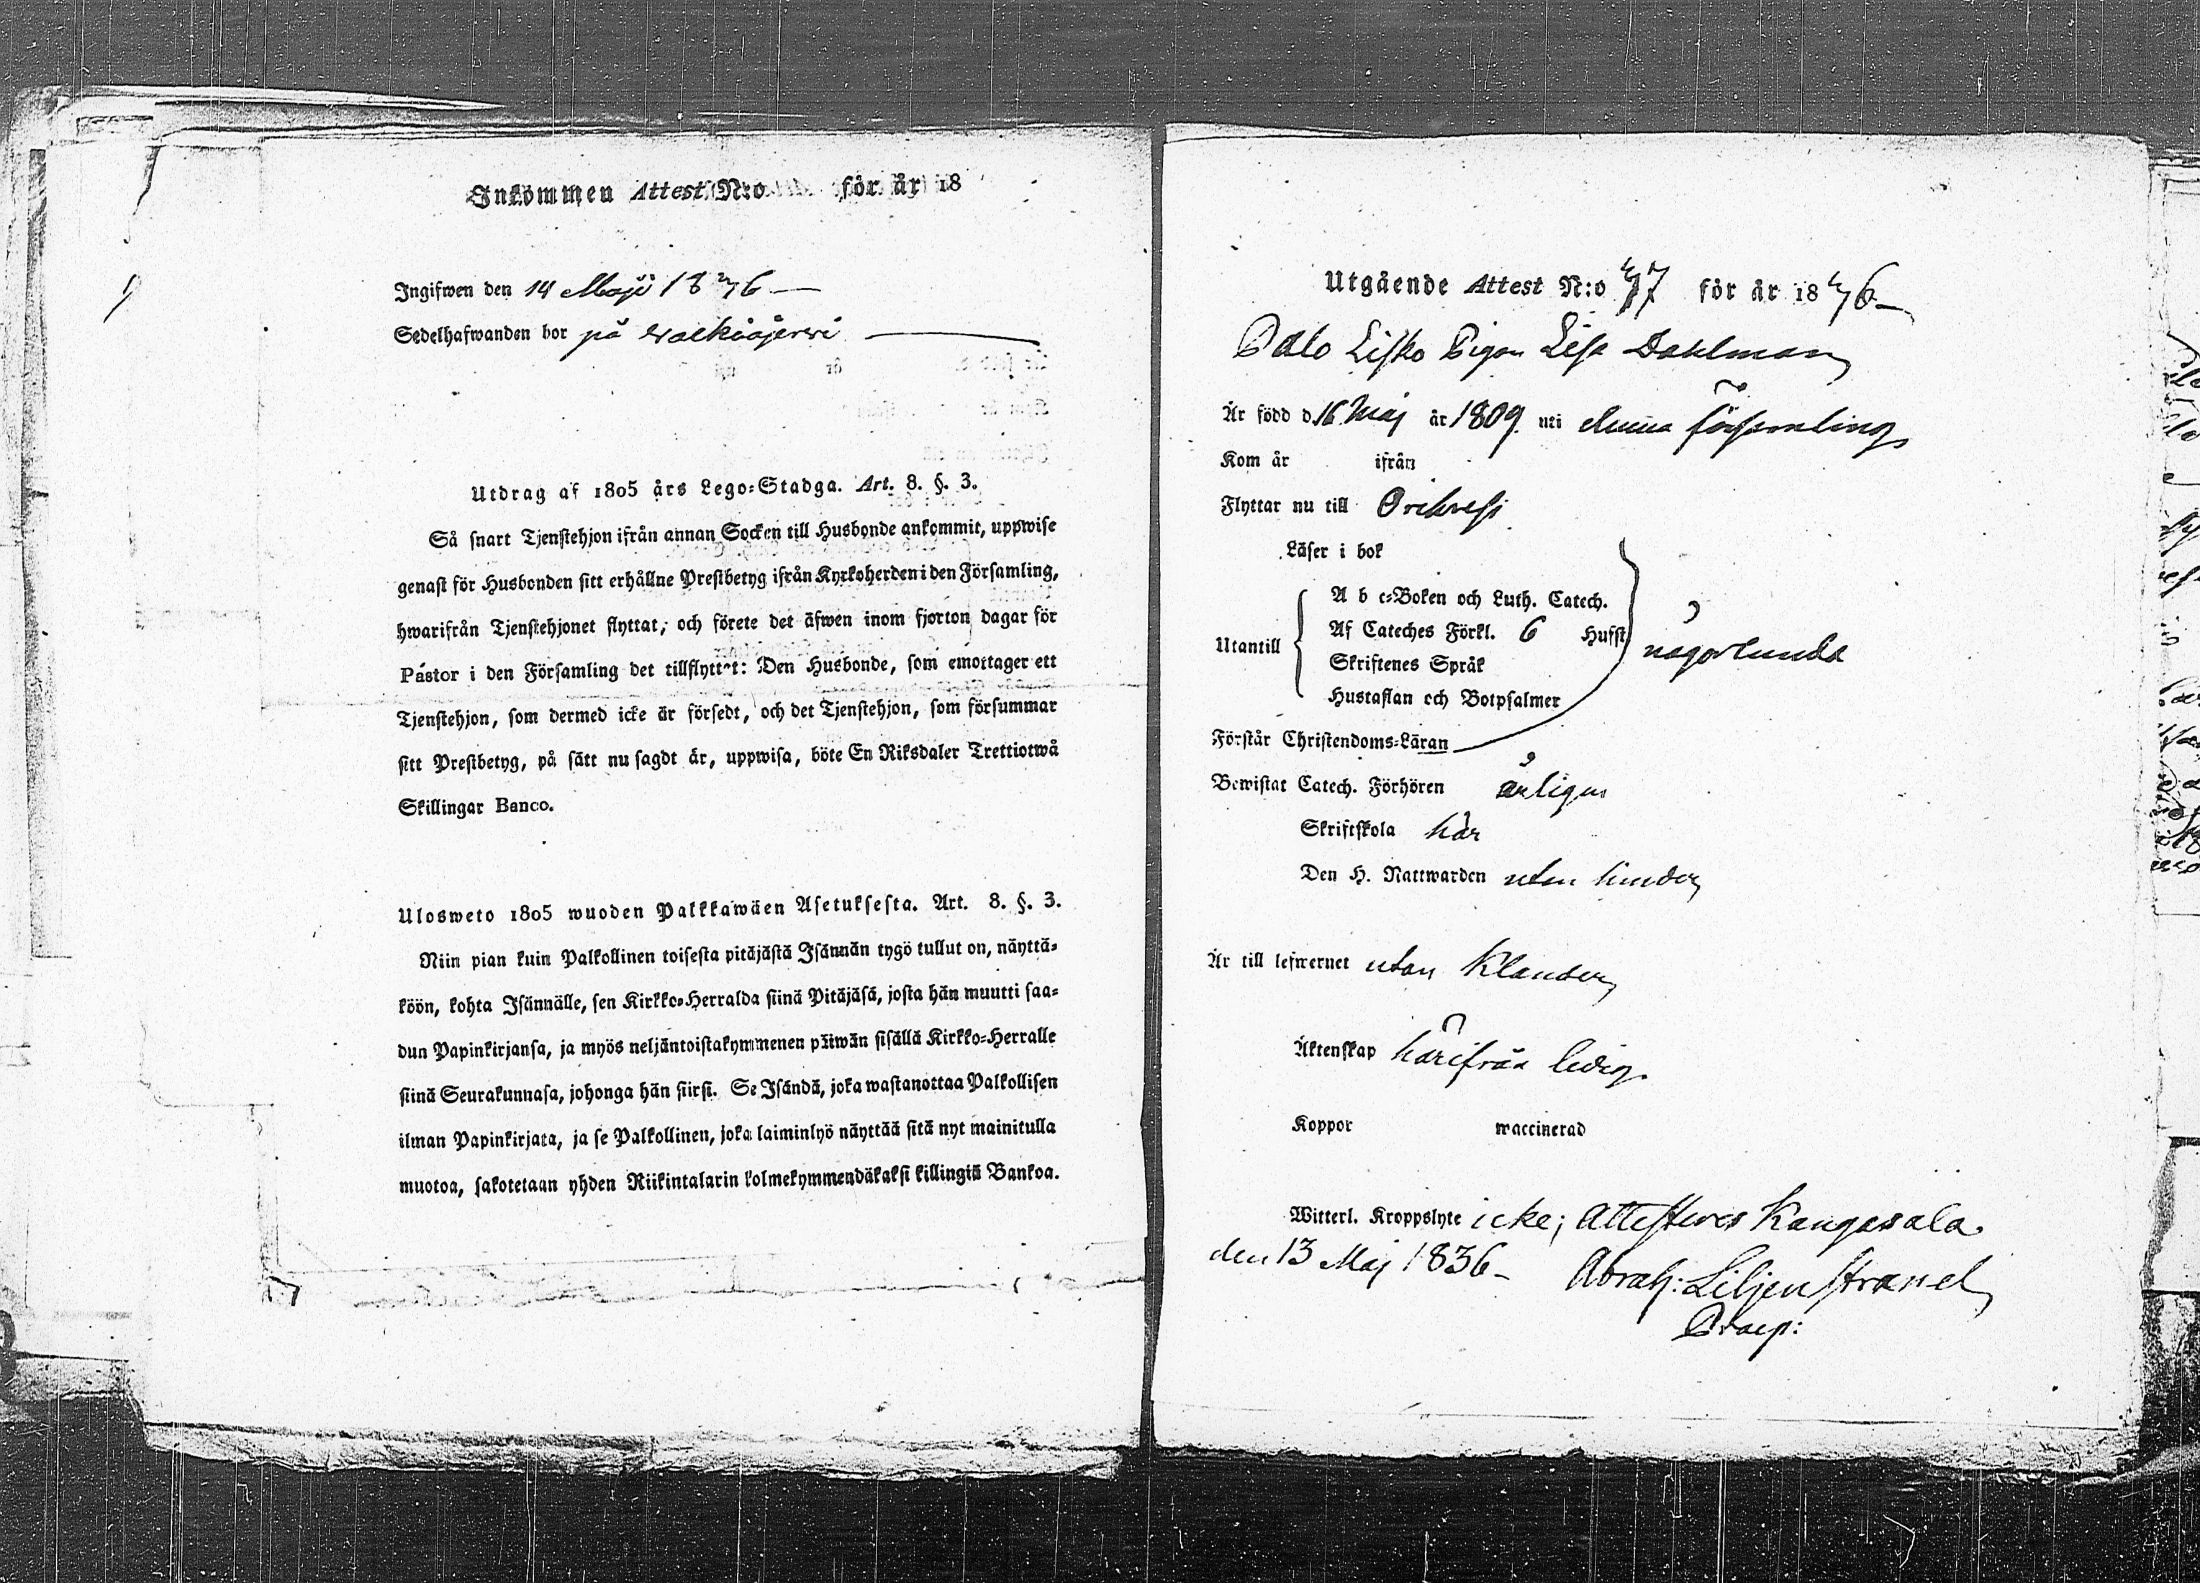 Inkommen Attest N:o för år 18
Ingifwen den 14 Maji 1836 —
Sedelhafwanden bor på Walkiajerwi —
Utdrag af 1805 års Lego-Stadga. Art. 8. §. 3.
Så snart Tjenstehjon ifrån annan Socken till Husbonde ankommit, uppwise
genast för Husbonden sitt erhållne Prestbetyg ifrån Kyrkoherden i den Församling,
hwarifrån Tjenstehjonet flyttat, och förete det äfwen inom fjorton dagar för
Pastor i den Församling det tillflyttat: Den Husbonde, som emottager ett
Tjenstehjon, som dermed icke är försedt, och det Tjenstehjon, som försummar
sitt Prestbetyg, på sätt nu sagdt är, uppwisa, böte En Riksdaler Trettiotwå
Skillingar Banco.
Ulosweto 1805 wuoden Palkkawäen Asetuksesta. Art. 8. §. 3.
Niin pian kuin Palkollinen toisesta pitäjästä Isännän tygö tullut on, näyttä-
köön, kohta Isännälle, sen Kirkko-Herralda siinä Pitäjäsä, josta hän muutti saa-
dun Papinkirjansa, ja myös neljäntoistakymmenen päiwän sisällä Kirkko-Herralle
siinä Seurakunnasa, johonga hän siirsi. Se Isändä, joka wastanottaa Palkollisen
ilman Papinkirjata, ja se Palkollinen, joka laiminlyö näyttää sitä nyt mainitulla
muotoa, sakotetaan yhden Riikintalarin kolmekymmendäkaksi killingiä Bankoa.
Utgående Attest N:o 47 för år 1836 —
Palo Lisko Pigan Lisa Dahlman
Är född d. 16 Maj år 1809. uti denna församling
Kom år ifrån
Flyttar nu till Orihvesi
Läser i bok
A b c-Boken och Luth. Catech.
Af Cateches Förkl. 6 Hufst
Utantill någorlunda
Skriftenes Språk
Hustaflan och Botpsalmer
Förstår Christendoms-Läran
Bewistat Catech. Förhören årligen
Skriftskola här
Den H. Nattwarden utan hinder
Är till lefwernet utan klander
Äktenskap härifrån ledig.
Koppor waccinerad
Witterl. Kroppslyte icke; Attesteres Kangasala
den 13 Maj 1836 — Abrah: Liljenstrand
Praep: